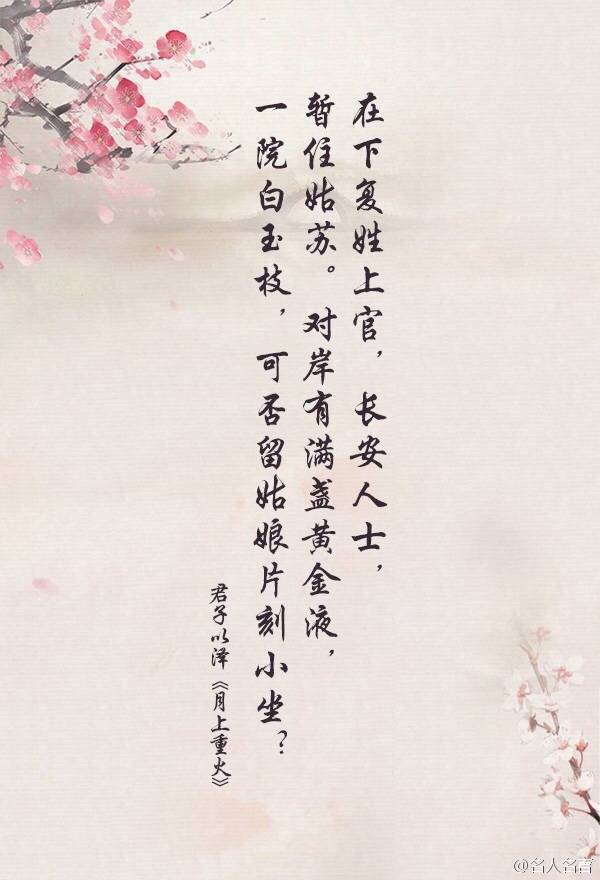 在下复姓上官，长安人士，
暂住姑苏。对岸有满盏黄金液，
一院白玉枝，可否留姑娘片刻小坐？
君子以泽《月上重火》
@名人名言